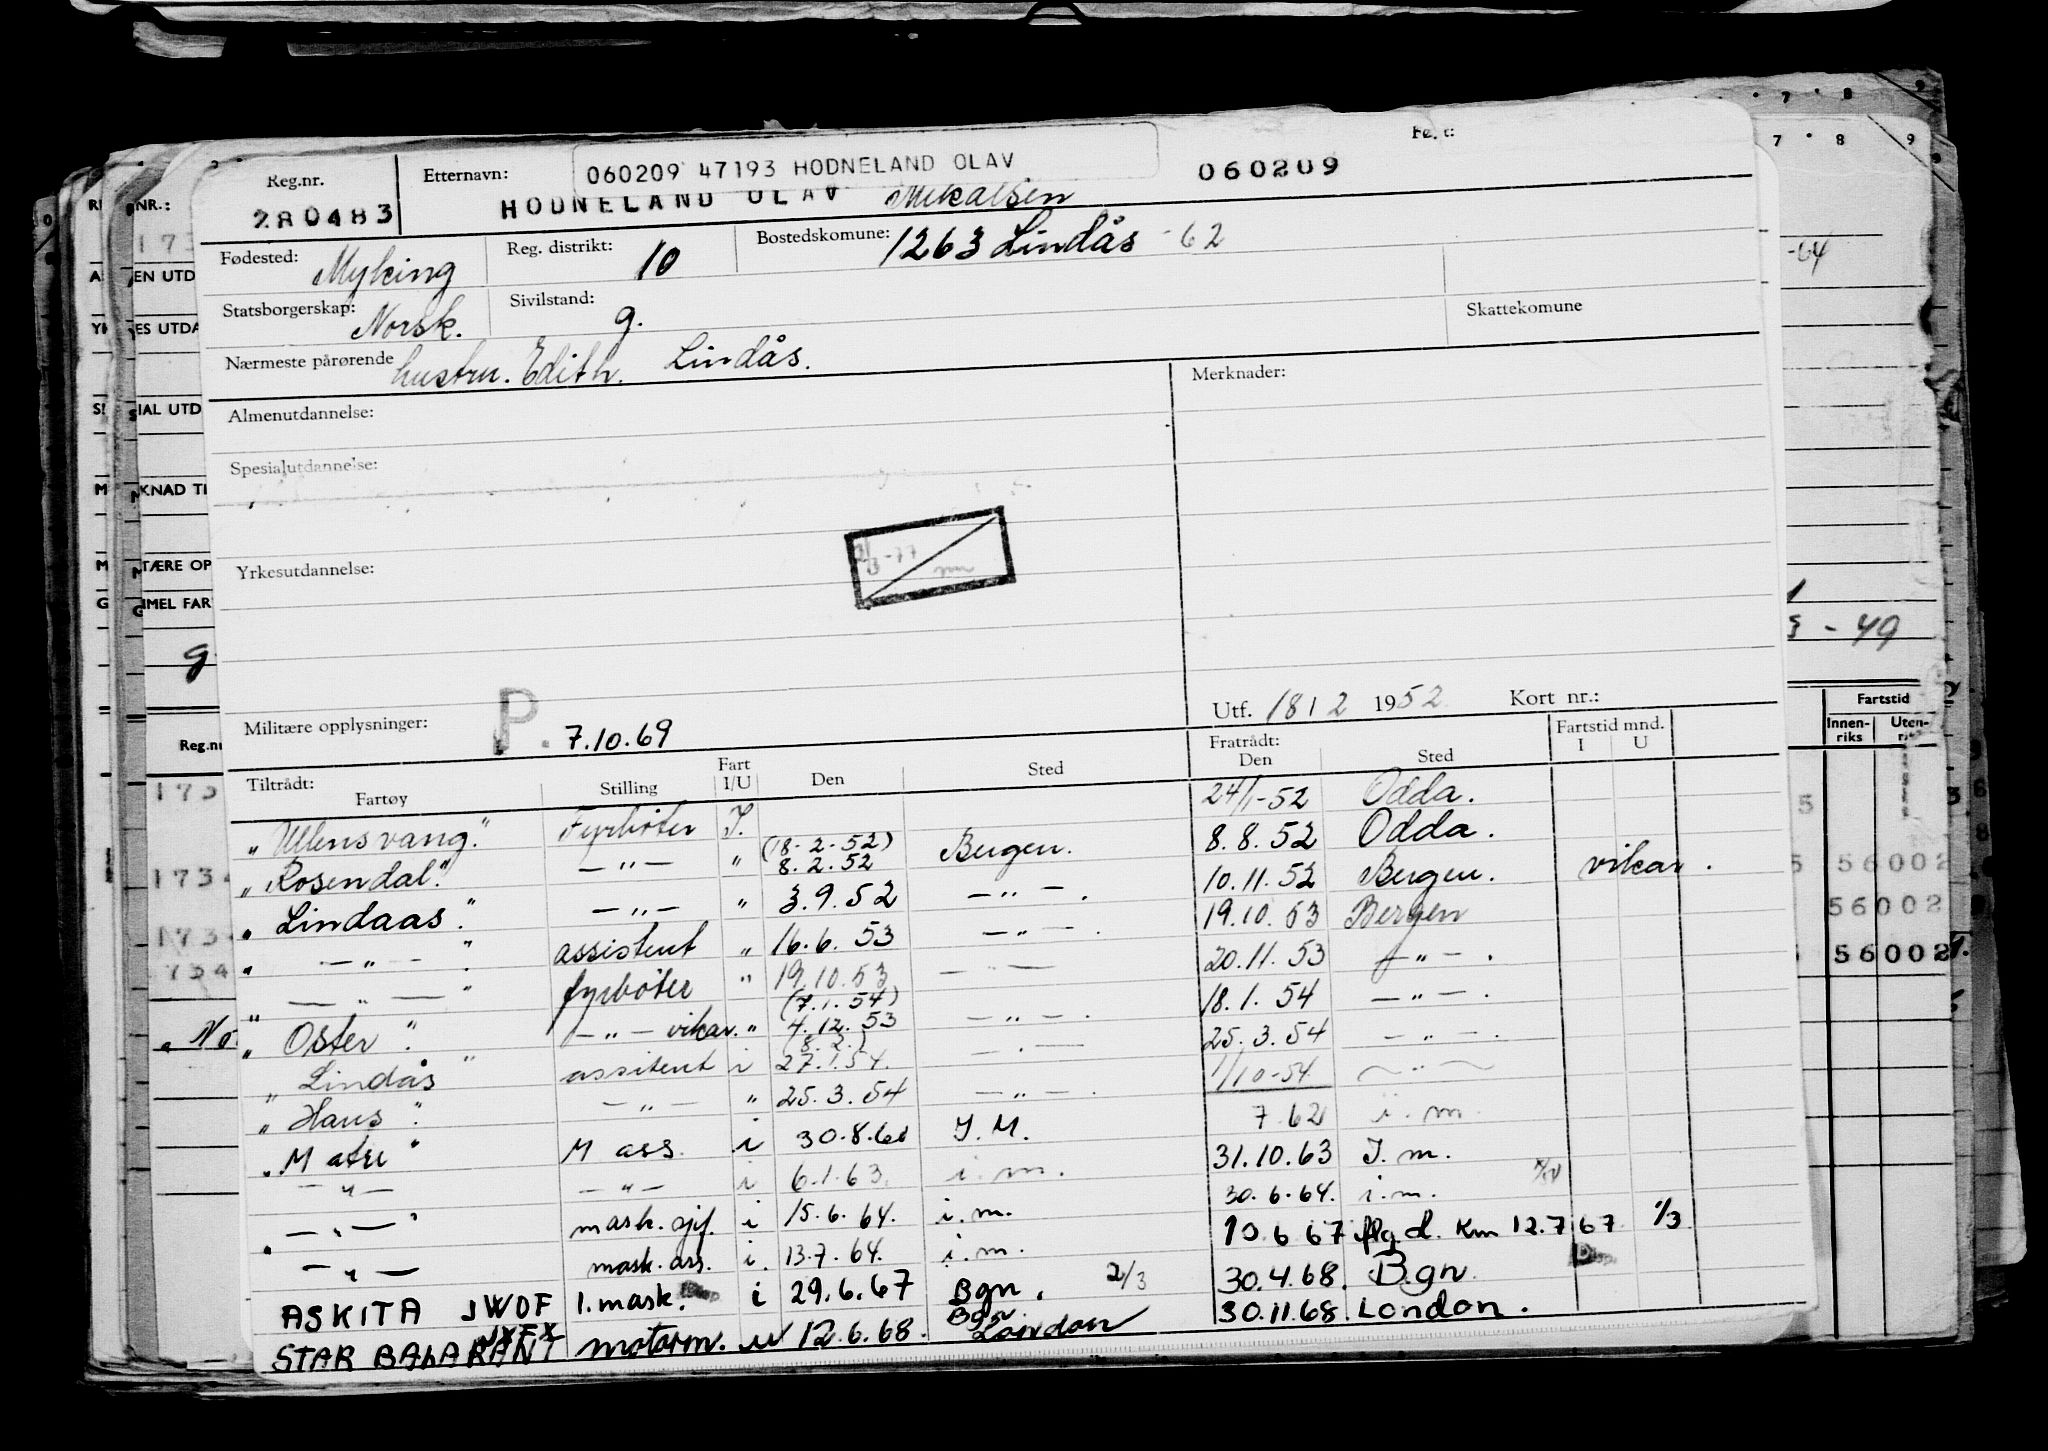 Reg.nr. 280483
Etternavn: 060209 47193 HODNELAND OLAV
HODNELAND OLAV Mikalsen
060209
Fødested: Myking
Reg. distrikt: 10
Bostedskomune: 1263 Lindås -62
Statsborgerskap: Norsk.
Sivilstand: g.
Skattekomune
Nærmeste pårørende hustru. Edith. Lindås.
Merknader:
Almenutdannelse:
Spesialutdannelse:
Yrkesutdannelse:
Militære opplysninger: P. 7.10.69
Utf. 18 12 1952 Kort nr.:
Tiltrådt: Fratrådt: Fartstid mnd.
Fartøy Stilling Fart I/U Den Sted Den Sted I U
"Ullensvang." Fyrbøter I. 24/1-52 Odda.
"Rosendal". —"— " (18-2-52) 8.2.52 Bergen. 8.8.52 Odda.
"Lindaas." —"— " 3.9.52 —"—. 10.11.52 Bergen. vikar.
" —"— " assistent " 16.6.53 —"—. 19.10.53 Bergen
" —"— " fyrbøter " 19.10.53 —"— 20.11.53 —"—.
"Oster". —"— vikar. " (7.1.54) 4.12.53 —"—. 18.1.54 —"—.
"Lindås" assitent i 27.1.54. —"— 25.3.54 —"—.
"Haus". —"— " 25.3.54 —"—. 1/10-54 —"—
"Matre" M ass. i 30.8.60 I.M. 7 62 i.m.
—"— —"— i 6.1.63. i.m. 31.10.63 I.m.
" —"— " mask.sjf. i 15.6.64. i.m. 30.6.64. i.m.
—"— mask.ass. i. 13.7.64. i.m. 10 6 67 flg d. Km 12.7 67 1/3
ASKITA JWOF 1.mask. i 29.6.67 Bgn. 2/3 30.4.68. Bgn.
STAR BALARANT JXFX motorm. u 12.6.68. Bgn London 30.11.68. London.
7 8 9
-64
- 49
Fartstid
Innenriks
56002
56002
56002
Reg.nr
173
1734
173
734